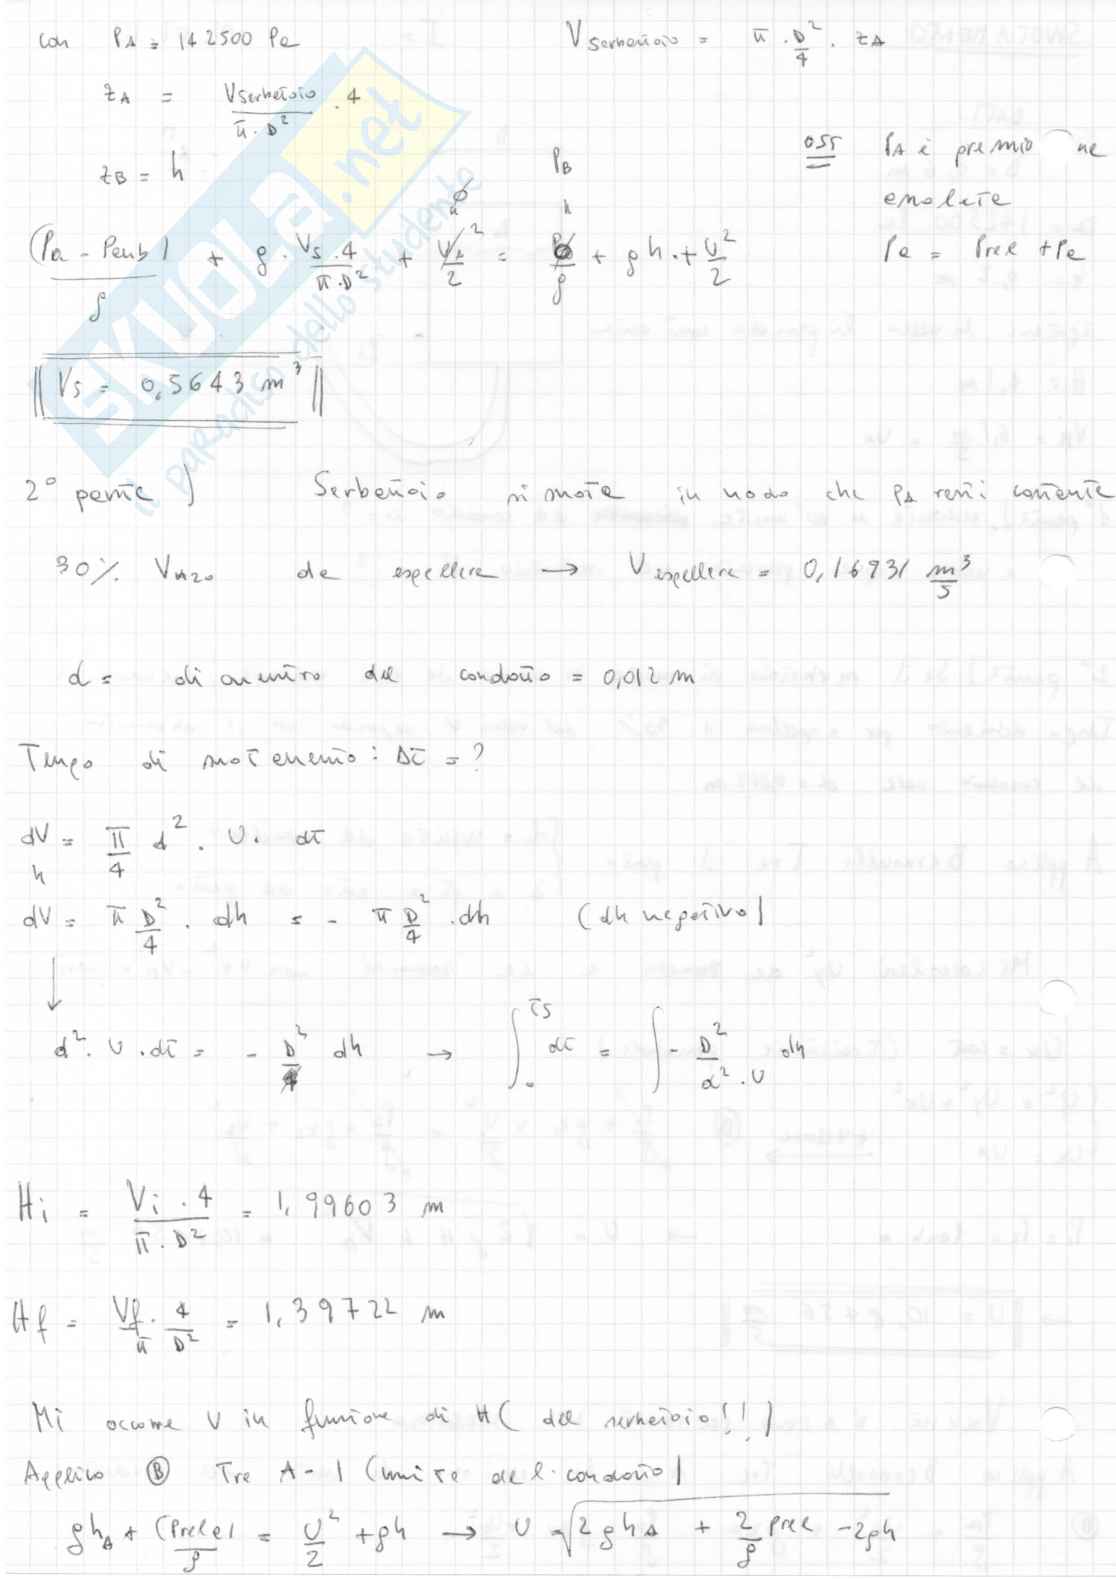 con PA = 142500 Pa
V serbatoio = π · D²/4 · zA
zA = Vserbatoio/(π · D²) · 4
zB = h
OSS PA è pressione
assoluta
(Pa - Pamb)/ρ + g · Vs · 4/(π · D²) + VA²/2 = PB/ρ + gh + U²/2
Pa = Prel + Pa
SKUOLA.net
il paradiso dello studente
Vs = 0,5643 m³
2° parte) Serbatoio si mote in modo che PA resti costante
30% VH20 da espellere → V espellere = 0,16931 m³/s
d = diametro del condotto = 0,012 m
Tempo di mot : Δt = ?
dV = π/4 d² · U · dt
dV = π D²/4 · dh = - π D²/4 · dh (dh negativo)
d² · U · dt = - D² dh → ∫ dt = ∫ - D²/(d² · U) dh
Hi = Vi · 4/(π · D²) = 1,99603 m
Hf = Vf/π · 4/D² = 1,39722 m
Mi occorre U in funzione di H (del serbatoio!!)
Applico Ⓑ Tra A-1 (uscita del condotto)
ghA + (Prele)/ρ = U²/2 + gh → U √(2ghA + 2/ρ Prel - 2gh)